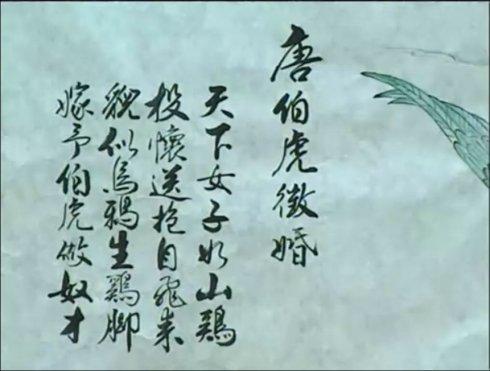 唐伯虎徵婚
天下女子如山鷄
投懷送抱自飛來
貌似烏鴉生鷄脚
嫁予伯虎做奴才